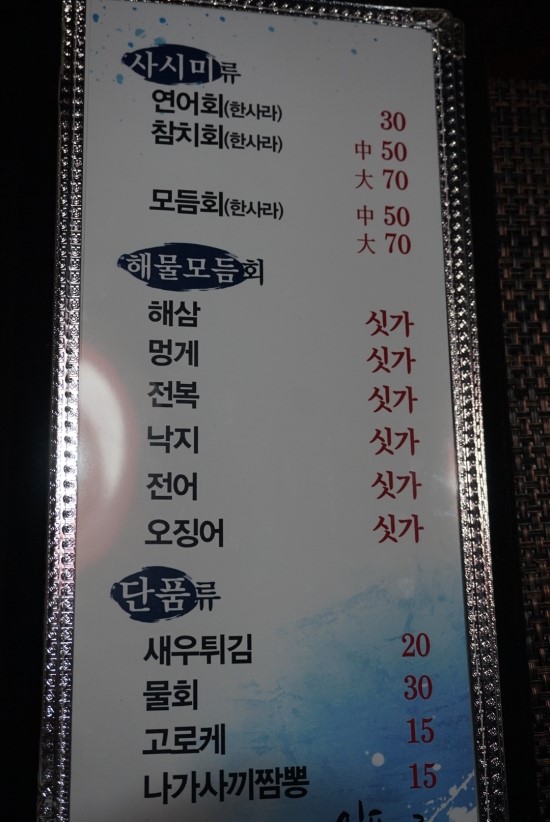 사시미류
연어회(한사라) 30
참치회(한사라) 中 50
大 70
모듬회(한사라) 中 50
大 70
해물모듬회
해삼 싯가
멍게 싯가
전복 싯가
낙지 싯가
전어 싯가
오징어 싯가
단품류
새우튀김 20
물회 30
고로케 15
나가사끼짬뽕 15